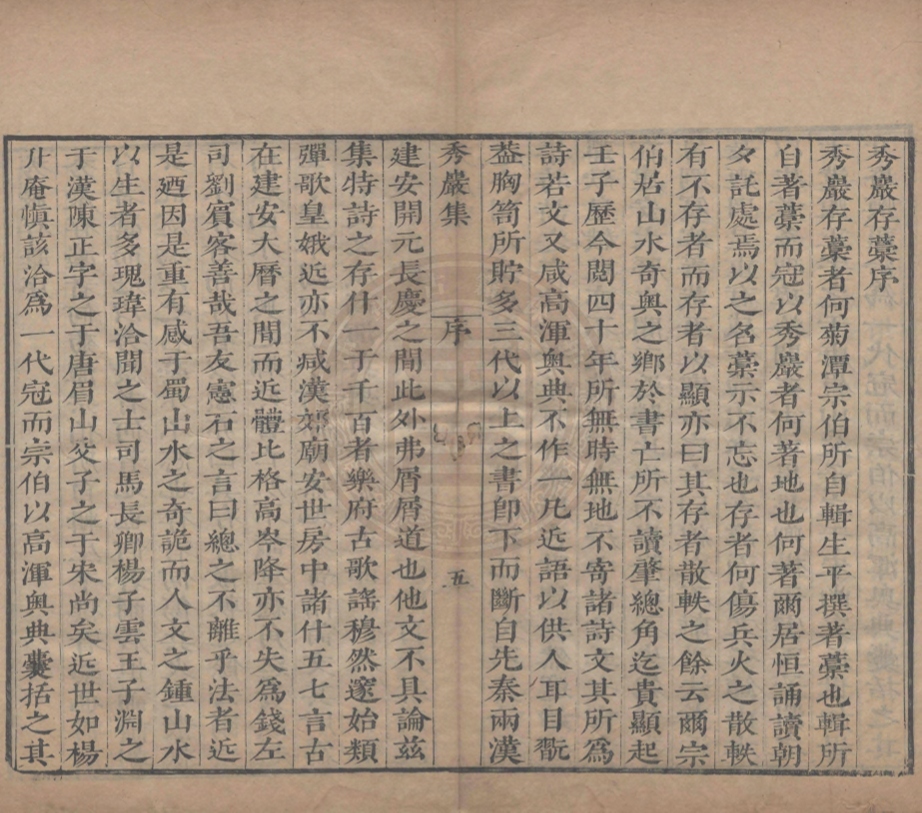 秀巖存藁序
秀巖存藁者何菊潭宗伯所自輯生平撰著藁也輯所
自著藁而冠以秀巖者何著地也何著爾居恒誦讀朝
夕託處焉以之名藁示不忘也存者何傷兵火之散軼
有不存者而存者以顯亦曰其存者散軼之餘云爾宗
伯居山水奇奧之鄉於書亡所不讀肇總角迄貴顯起
壬子歷今閱四十年所無時無地不寄諸詩文其所為
詩若文又咸高渾奧典不作一凡近語以供人耳目翫
葢胸笥所貯多三代以上之書即下而斷自先秦兩漢
秀巖集 序 五
建安開元長慶之間此外弗屑屑道也他文不具論茲
集特詩之存什一于千百者樂府古歌謠穆然邃始類
彈歌皇娥近亦不減漢郊廟安世房中諸什五七言古
在建安大曆之間而近體比格高岑降亦不失為錢左
司劉賓客善哉吾友憲石之言曰總之不離乎法者近
是廼因是重有感于蜀山水之奇詭而人文之鍾山水
以生者多瑰瑋洽聞之士司馬長卿楊子雲王子淵之
于漢陳正字之于唐眉山父子之于宋尚矣近世如楊
升庵愼該洽爲一代冠而宗伯以高渾奧典囊括之其